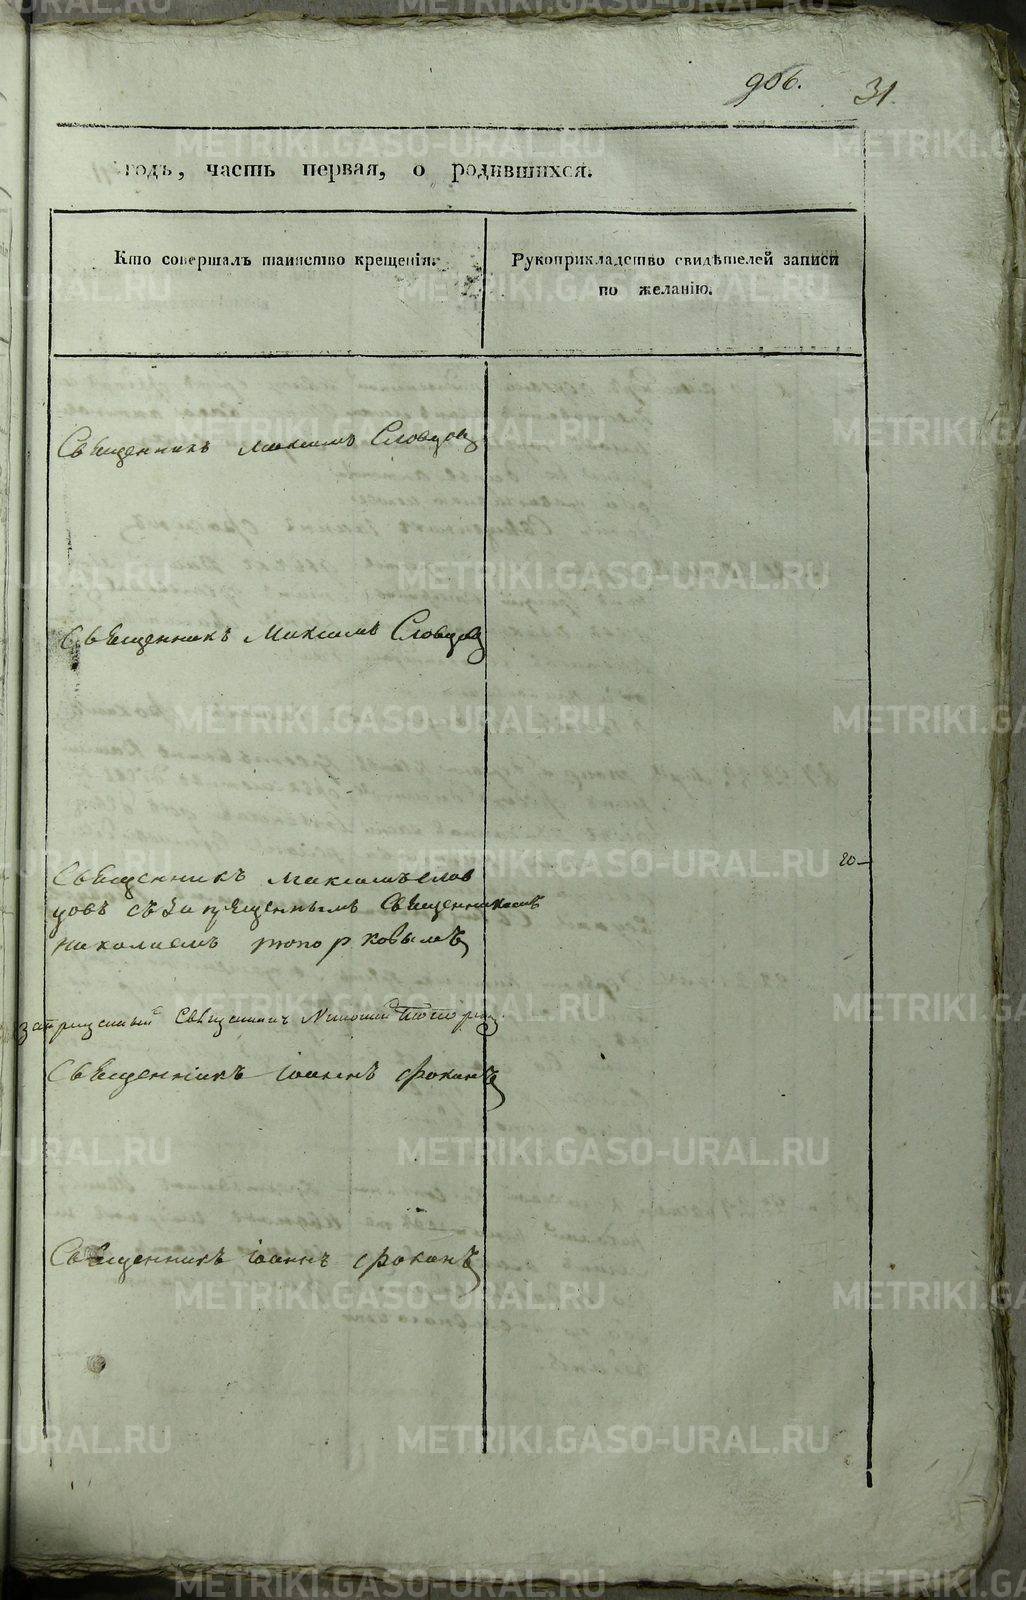 906. 31
годъ, часть первая, о родившихся.
Кто совершалъ таинство крещенія.
Рукоприкладство свидѣтелей записи
по желанію.
Священникъ Максимъ Словцовъ
Священникъ Максимъ Словцовъ
20
Священникъ Максимъ Слов
цовъ съ запрещеннымъ Священникомъ
Николаемъ Топорковымъ
запрещенный Священникъ Николай
Священникъ Іоаннъ Фокинъ
Священникъ Іоаннъ Фокинъ
METRIKI.GASO-URAL.RU